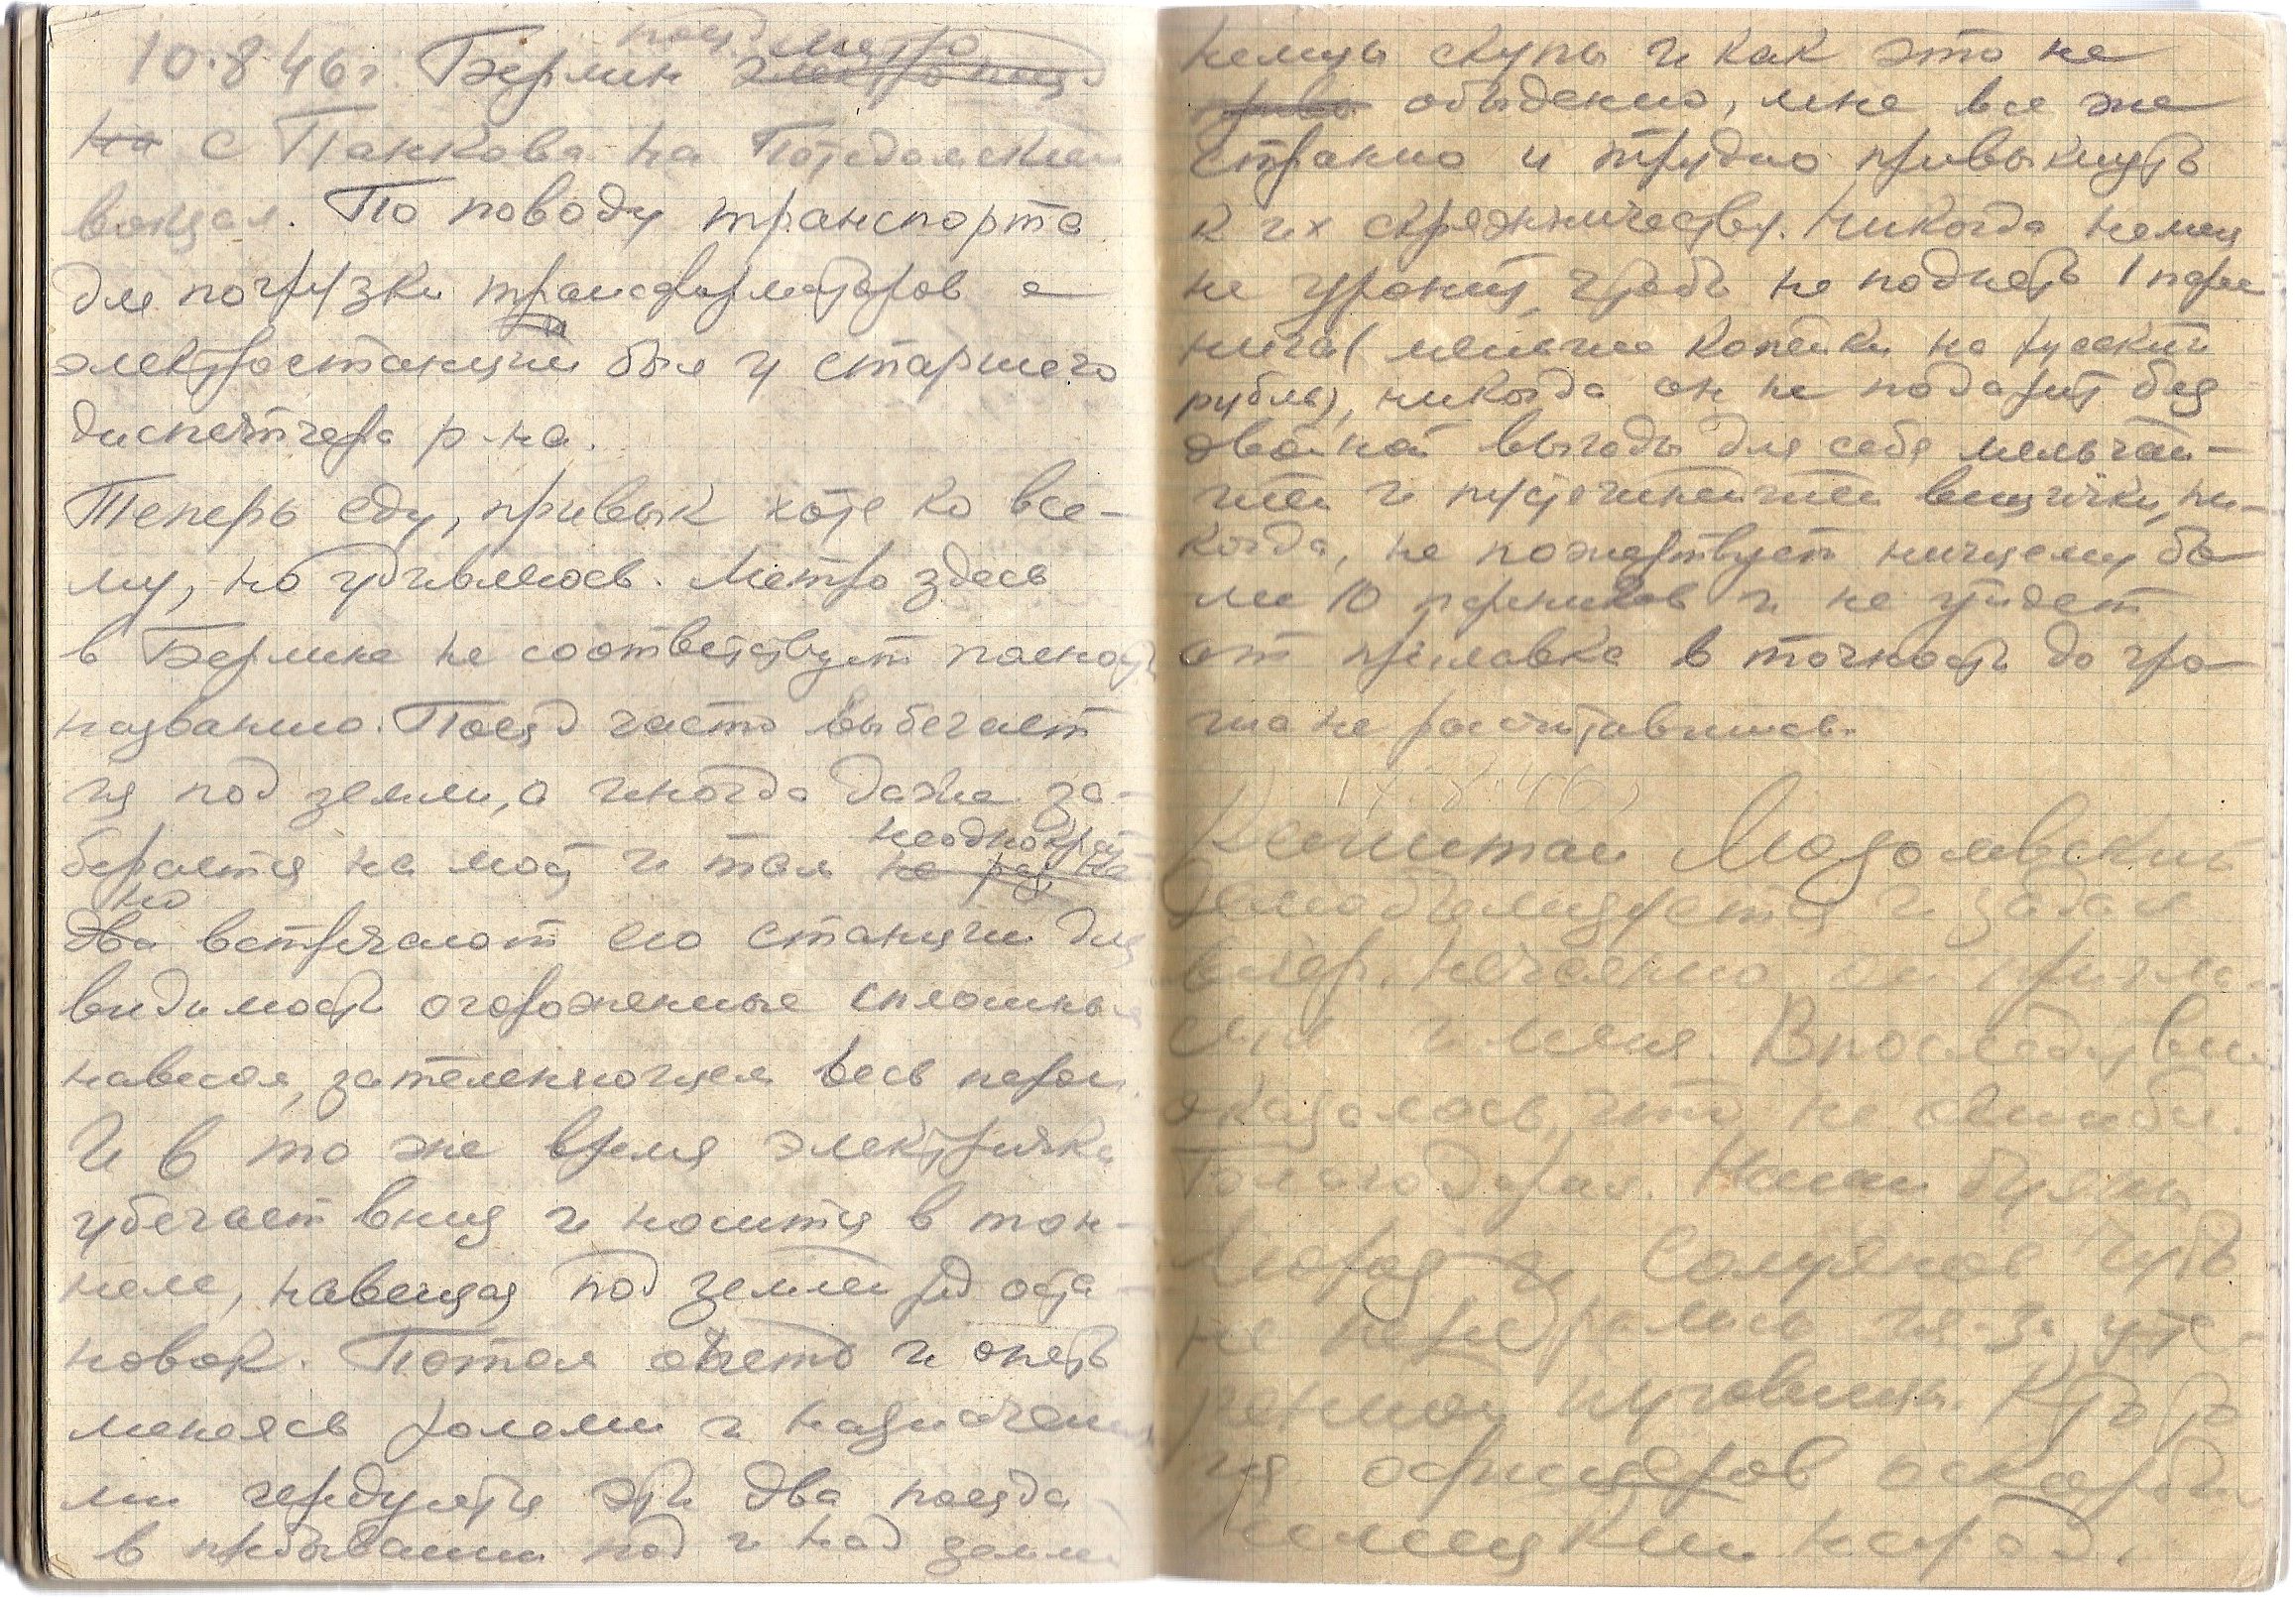 10.8.46г. Берлин поезд метро электропоезд
На с Панкова на Потсдамский
вокзал. По поводу транспорта
для погрузки трансформаторов с
электростанции был у старшего
диспетчера р-на.
Теперь еду, привык хотя ко все-
му, но удивляюсь. Метро здесь
в Берлине не соответствует полность
названию. Поезд часто выбегает
из под земли, а иногда даже за-
берается на мост и там не раз на неоднократ
но
два встречают его станции для
видимости огороженные сплошным
навесом, затемняющем весь перон.
И в то же время электричка
убегает вниз и носится в тон-
неле, навещая под землей ряд оста-
новок. Потом опять и опять
меняясь ролями и назначения
ми чередуются эти два поезда
в пребывании под и над землей
Немцы скупы и как это не
приво обыденно, мне все же
странно и трудно привыкнуть
к их скряжничеству. Никогда немец
не уронит, чтоб не поднять 1 пфен
нига (меньше копейки на русский
рубль), никогда он не подарит без
двойной выгоды для себя мельчай-
шей и пустячнейшей вещички, ни-
когда, не пожертвует нищему бо
лее 10 пфеннигов и не уйдет
от прилавка в точность до гро
ша не расчитавшись.
14.8.46г
Капитан
демобилизуется и задал
вечер. Нечаянно он пригла
сил и меня. Впоследствии
оказалось, что не ошибся.
Благодарил.
и Солуянов чуть
не передрались из-за утe-
ренной пуговицы. Кто-то
из офицеров оскорбил
немецкий народ.